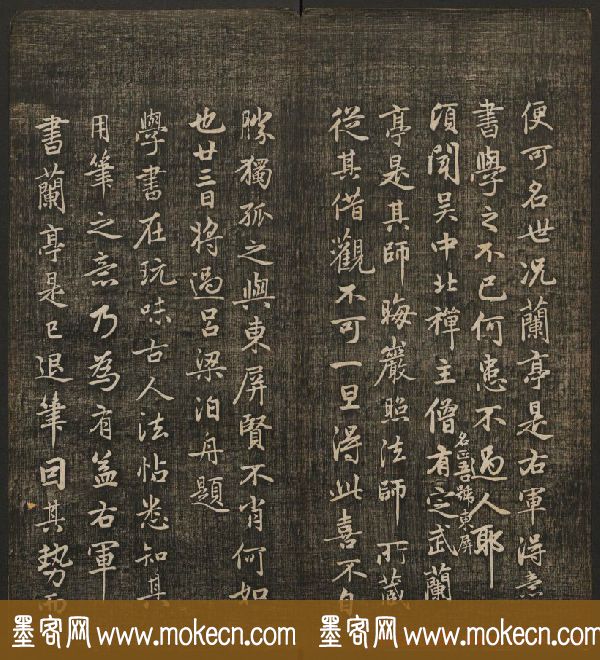 便可名世况蘭亭是右軍得意
書學之不已何患不過人耶
頃聞吳中北禪主僧有定武蘭
名正吾號東屏
亭是其師晦巖照法師所藏
從其借觀不可一旦得此喜不自
勝獨孤之與東屏賢不肖何如
也廿三日將過呂梁泊舟題
學書在玩味古人法帖悉知其
用筆之意乃為有益右軍
書蘭亭是已退筆因其勢而
墨客网 www.mokecn.com 墨客网 www.mokecn.com